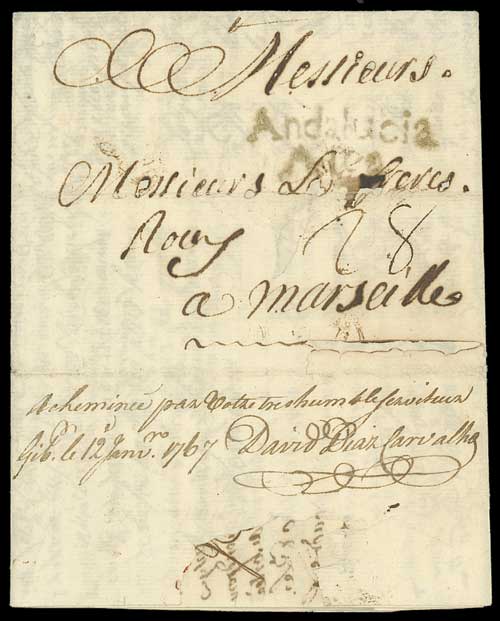 Messieurs.
Andalucia
Alta
Messieurs Les freres.
Roux 28
a marseille
Acheminée par Votre tres humble Serviteur
Gibr. le 12 Janvro. 1767 David Diaz Carvalho